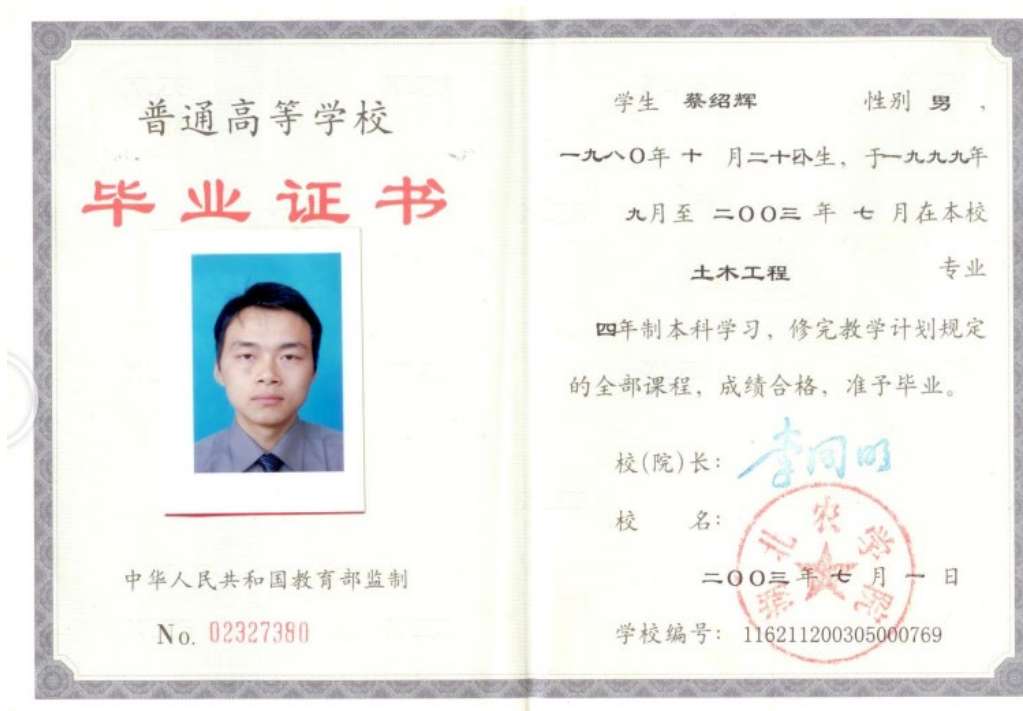 普通高等学校
毕业证书
中华人民共和国教育部监制
No. 02327380
学生 蔡绍辉 性别 男，
一九八〇年 十 月二十 生，于一九九九年
九月至 二〇〇三 年 七 月在本校
土木工程 专业
四年制本科学习，修完教学计划规定
的全部课程，成绩合格，准予毕业。
校(院)长： 李同明
校 名：
北农学院
二〇〇三年 七 月 一 日
学校编号： 116211200305000769